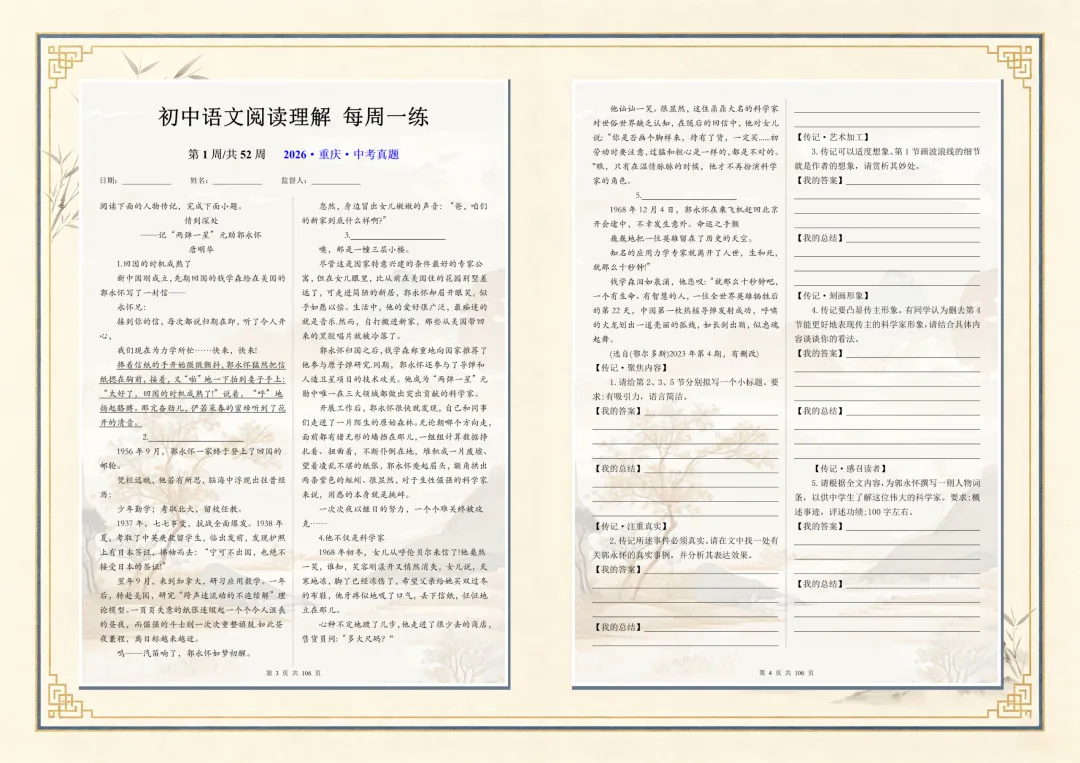 初中语文阅读理解 每周一练
第 1 周/共 52 周 2026·重庆·中考真题
日期：____________ 姓名：____________ 监督人：____________
阅读下面的人物传记，完成下面小题。
情到深处
——记“两弹一星”元勋郭永怀
唐明华
1.回国的时机成熟了
新中国刚成立，先期回国的钱学森给在美国的
郭永怀写了一封信——
永怀兄：
接到你的信，每次都说归期在即，听了令人开
心，
我们现在为力学所忙……快来，快来!
捧着信纸的手开始微微颤抖，郭永怀猛然把信
纸摁在胸前，接着，又“啪”地一下拍到妻子手上：
“太好了，回国的时机成熟了!”说着，“呼”地
扬起胳膊。那亢奋劲儿，伊若采春的蜜蜂听到了花
开的清音。
2.______________________
1956 年 9 月，郭永怀一家终于登上了回国的
邮轮。
凭栏远眺，他若有所思，脑海中浮现出往昔经
历：
少年勤学；考取北大，留校任教。
1937 年，七七事变，抗战全面爆发。1938 年
夏，考取了中英庚款留学生，临出发前，发现护照
上有日本签证，拂袖而去：“宁可不出国，也绝不
接受日本的签证!”
翌年 9 月，来到加拿大，研习应用数学。一年
后，转赴美国，研究“跨声速流动的不连续解”理
论模型。一页页失意的纸张连缀起一个个令人沮丧
的昼夜，而倔强的斗士则一次次重整旗鼓。如此昼
夜兼程，离目标越来越近。
呜——汽笛响了，郭永怀如梦初醒。
忽然，身边冒出女儿嫩嫩的声音：“爸，咱们
的新家到底什么样啊?”
3.______________________
噢，那是一幢三层小楼。
尽管这是国家特意兴建的条件最好的专家公
寓，但在女儿眼里，比从前在美国住的花园别墅差
远了，可走进简陋的新居，郭永怀却眉开眼笑，似
乎如愿以偿。生活中，他的爱好很广泛，最痴迷的
就是音乐。然而，自打搬进新家，那些从美国带回
来的黑胶唱片就被冷落了。
郭永怀归国之后，钱学森郑重地向国家推荐了
他参与原子弹研究。同期，郭永怀还参与了导弹和
人造卫星项目的技术攻关。他成为“两弹一星”元
勋中唯一在三大领域都做出突出贡献的科学家。
开展工作后，郭永怀很快就发现，自己和同事
们走进了一片陌生的原始森林。无论朝哪个方向走，
面前都有堵无形的墙挡在那儿，一组组计算数据挣
扎着、扭曲着，不断仆倒在地，堆积成一片废墟。
望着凌乱不堪的纸张，郭永怀蹙起眉头，额角拱出
两条紫色的蚯蚓。很显然，对于生性倔强的科学家
来说，困惑的本身就是挑衅。
一次次夜以继日的努力，一个个难关终被攻
克……
4.他不仅是科学家
1968 年初冬，女儿从呼伦贝尔来信了!他粲然
一笑，谁知，笑容刚漾开又悄然消失，女儿说，天
寒地冻，脚丫已经冻伤了，希望父亲给她买双过冬
的布鞋，他牙疼似地嘬了口气，丢下信纸，怔怔地
立在那儿。
心神不定地踱了几步，他走进了很少去的商店，
售货员问：“多大尺码？”
第 3 页 共 106 页
他讪讪一笑。很显然，这位鼎鼎大名的科学家
对世俗世界缺乏认知，在随后的回信中，他对女儿
说：“你是否画个脚样来，待有了货，一定买……初
劳动时要注意，过猛和担心是一样的，都是不对的。
”瞧，只有在温情脉脉的时候，他才不再扮演科学
家的角色。
5.______________________
1968 年 12 月 4 日，郭永怀在乘飞机赶回北京
开会途中，不幸发生意外。命运之手颤
巍巍地把一位英雄留在了历史的天空。
知名的应用力学专家就离开了人世，生和死，
就那么十秒钟!”
钱学森泪如泉涌，他悲叹：“就那么十秒钟吧，
一个有生命、有智慧的人，一位全世界英雄牺牲后
的第 22 天，中国第一枚热核导弹发射成功，呼啸
的火龙划出一道亮丽的弧线，如长剑出鞘，似忠魂
起舞。
(选自《鄂尔多斯》2023 年第 4 期，有删改)
【传记·聚焦内容】
1. 请给第 2、3、5 节分别拟写一个小标题。要
求:有吸引力，语言简洁。
【我的答案】
【我的总结】
【传记·注重真实】
2.传记所述事件必须真实。请在文中找一处有
关郭永怀的真实事例，并分析其表达效果。
【我的答案】
【我的总结】
【传记·艺术加工】
3.传记可以适度想象。第 1 节画波浪线的细节
就是作者的想象，请赏析其妙处。
【我的答案】
【我的总结】
【传记·刻画形象】
4.传记要凸显传主形象。有同学认为删去第 4
节能更好地表现传主的科学家形象，请结合具体内
容谈谈你的看法。
【我的答案】
【我的总结】
【传记·感召读者】
5.请根据全文内容，为郭永怀撰写一则人物词
条，以供中学生了解这位伟大的科学家。要求:概
述事迹，评述功绩;100 字左右。
【我的答案】
【我的总结】
第 4 页 共 106 页